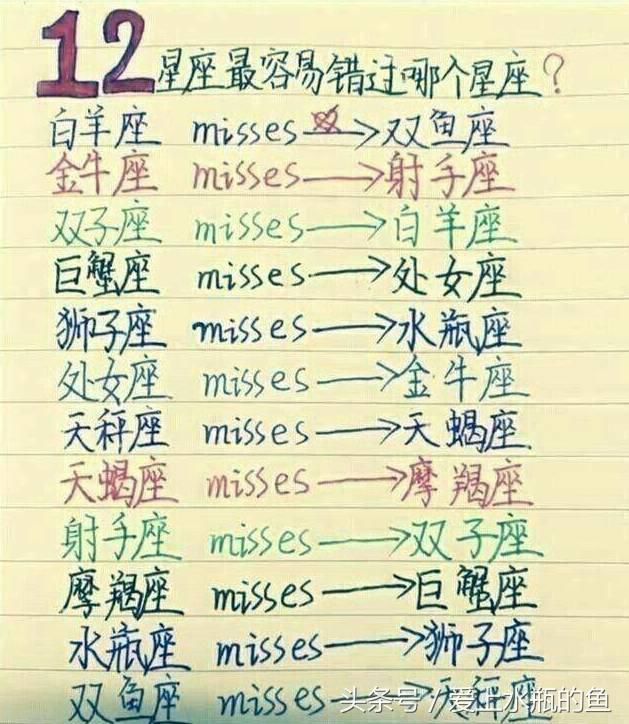 12星座最容易错过哪个星座?
白羊座 misses→双鱼座
金牛座 misses→射手座
双子座 misses→白羊座
巨蟹座 misses→处女座
狮子座 misses→水瓶座
处女座 misses→金牛座
天秤座 misses→天蝎座
天蝎座 misses→摩羯座
射手座 misses→双子座
摩羯座 misses→巨蟹座
水瓶座 misses→狮子座
双鱼座 misses→天秤座
头条号/爱上水瓶的鱼